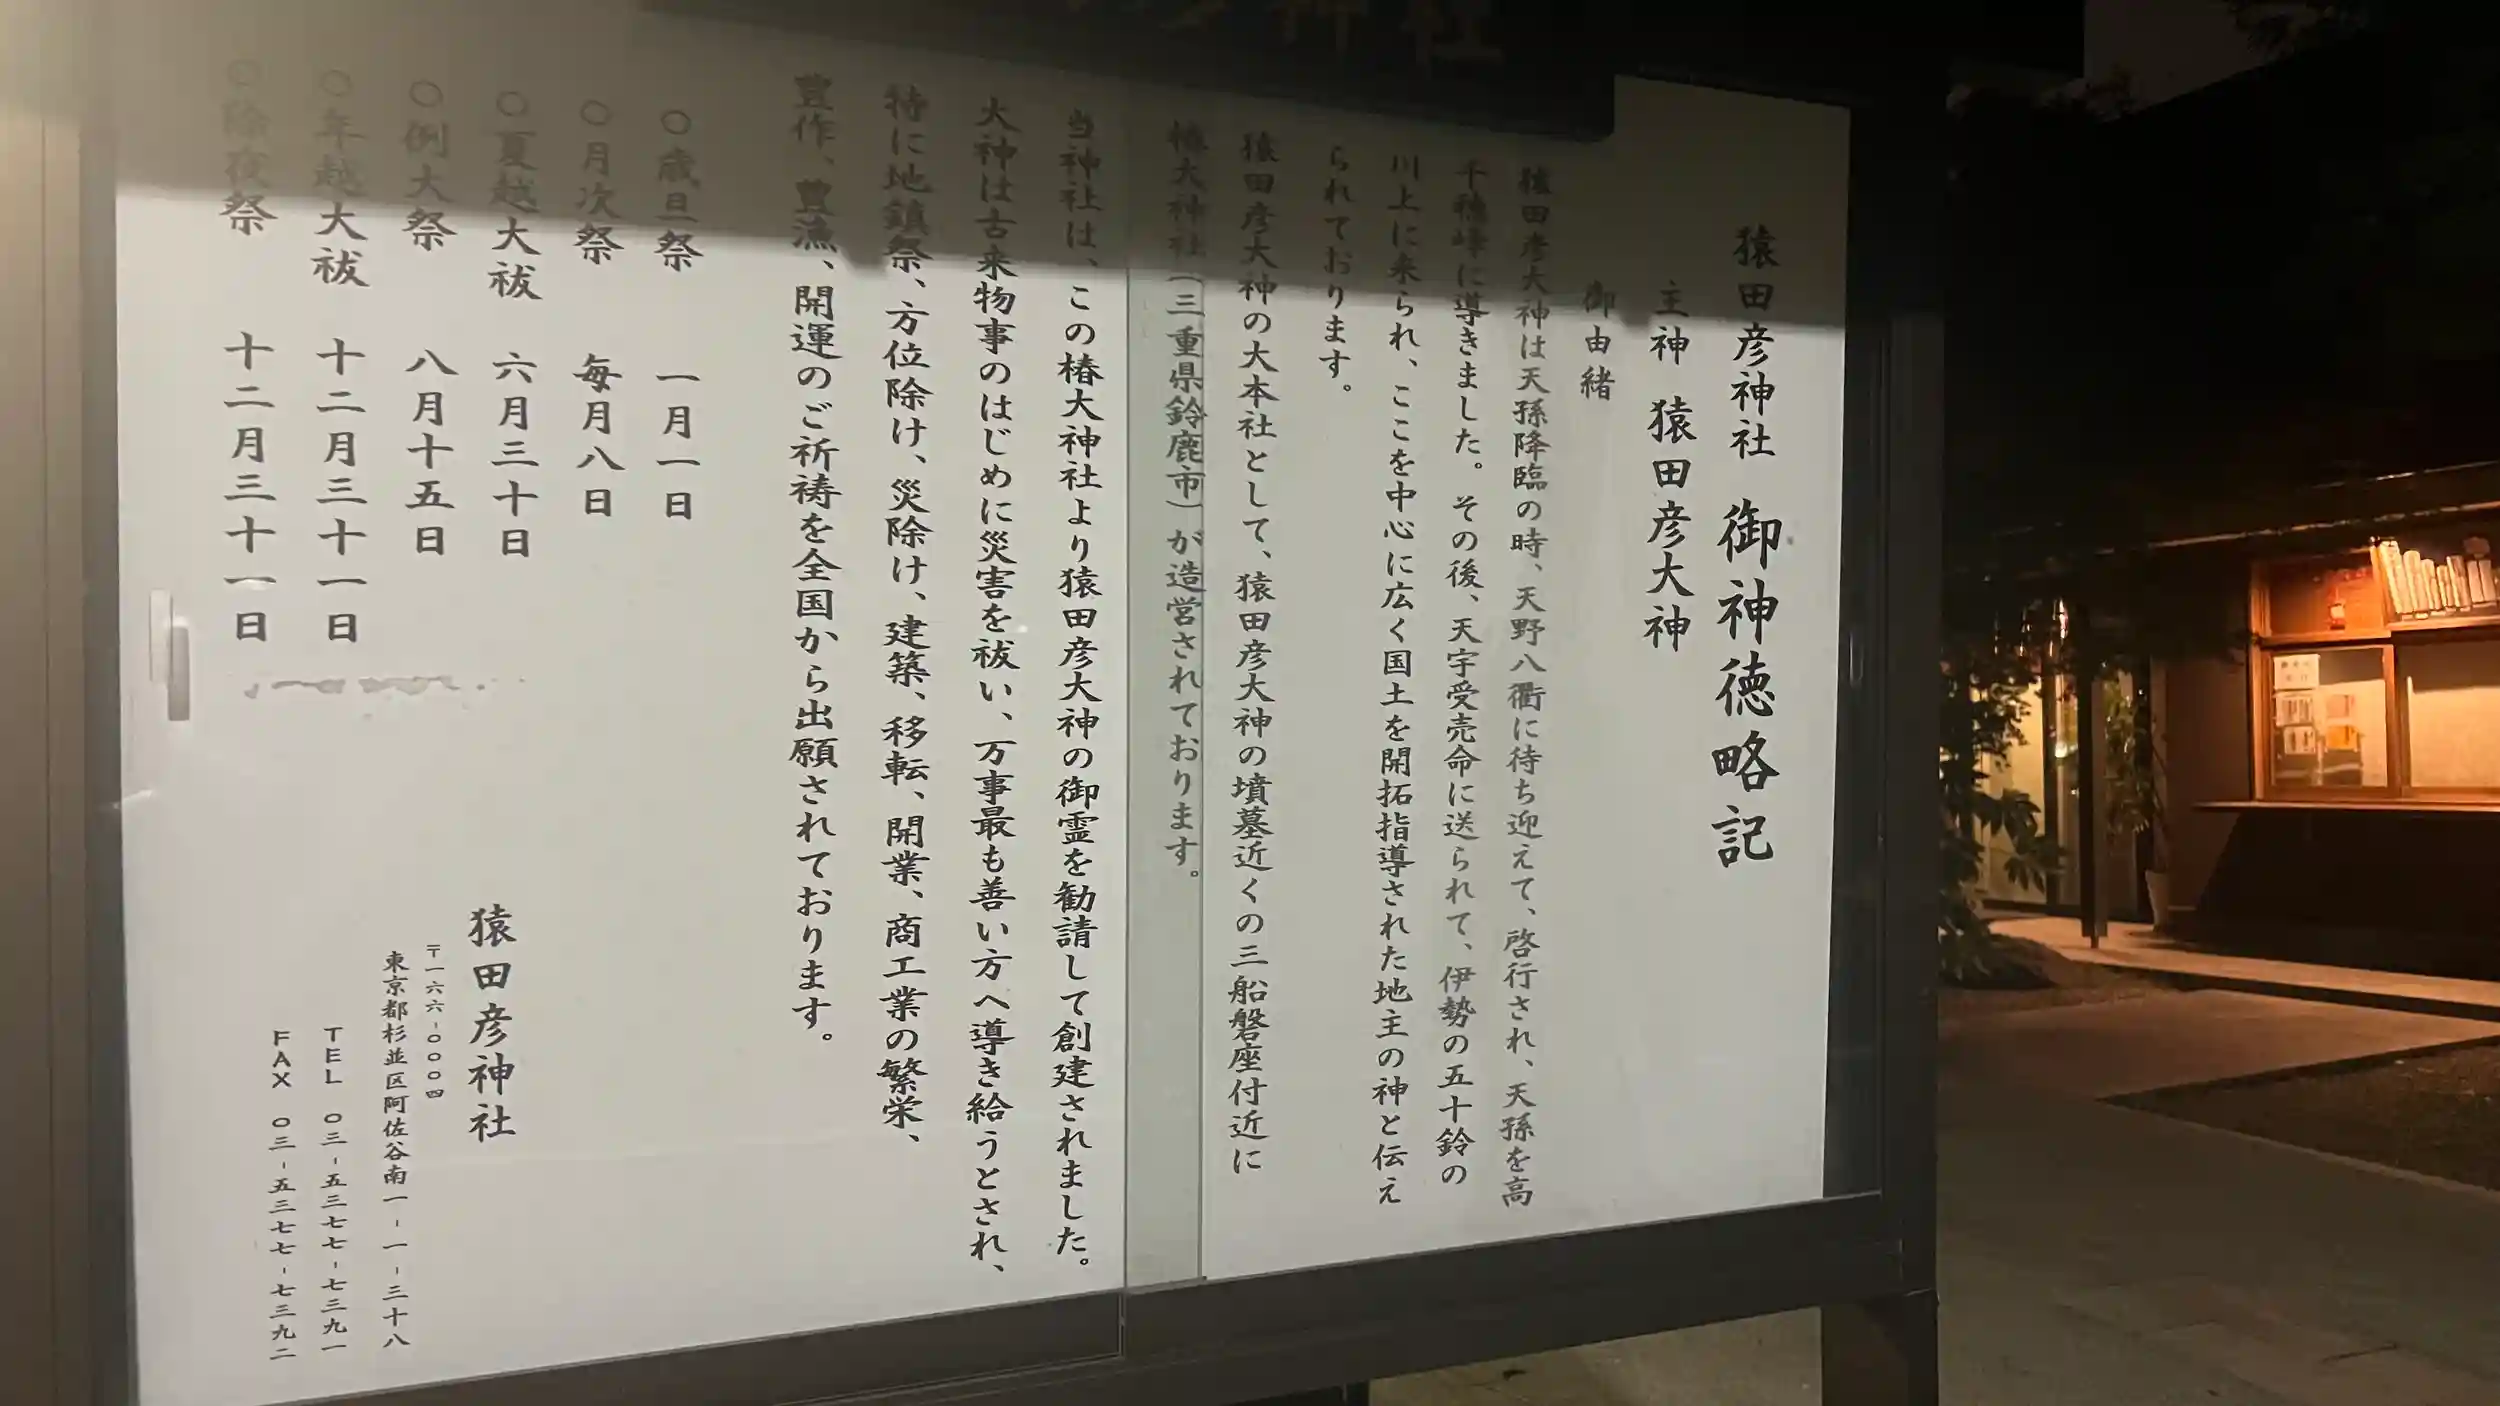 神社
猿田彦神社 御神徳略記
主神 猿田彦大神
御由緒
猿田彦大神は天孫降臨の時、天野八衢に待ち迎えて、啓行され、天孫を高
千穂峰に導きました。その後、天宇受売命に送られて、伊勢の五十鈴の
川上に来られ、ここを中心に広く国土を開拓指導された地主の神と伝え
られております。
猿田彦大神の大本社として、猿田彦大神の墳墓近くの三船磐座付近に
椿大神社（三重県鈴鹿市）が造営されております。
当神社は、この椿大神社より猿田彦大神の御霊を勧請して創建されました。
大神は古来物事のはじめに災害を祓い、万事最も善い方へ導き給うとされ、
特に地鎮祭、方位除け、災除け、建築、移転、開業、商工業の繁栄、
豊作、豊漁、開運のご祈祷を全国から出願されております。
〇歳旦祭 一月一日
〇月次祭 毎月八日
〇夏越大祓 六月三十日
〇例大祭 八月十五日
〇年越大祓 十二月三十一日
〇除夜祭 十二月三十一日
猿田彦神社
〒一六六-〇〇〇四
東京都杉並区阿佐谷南一-一-三十八
TEL 〇三-五三七七-七三九一
FAX 〇三-五三七七-七三九二